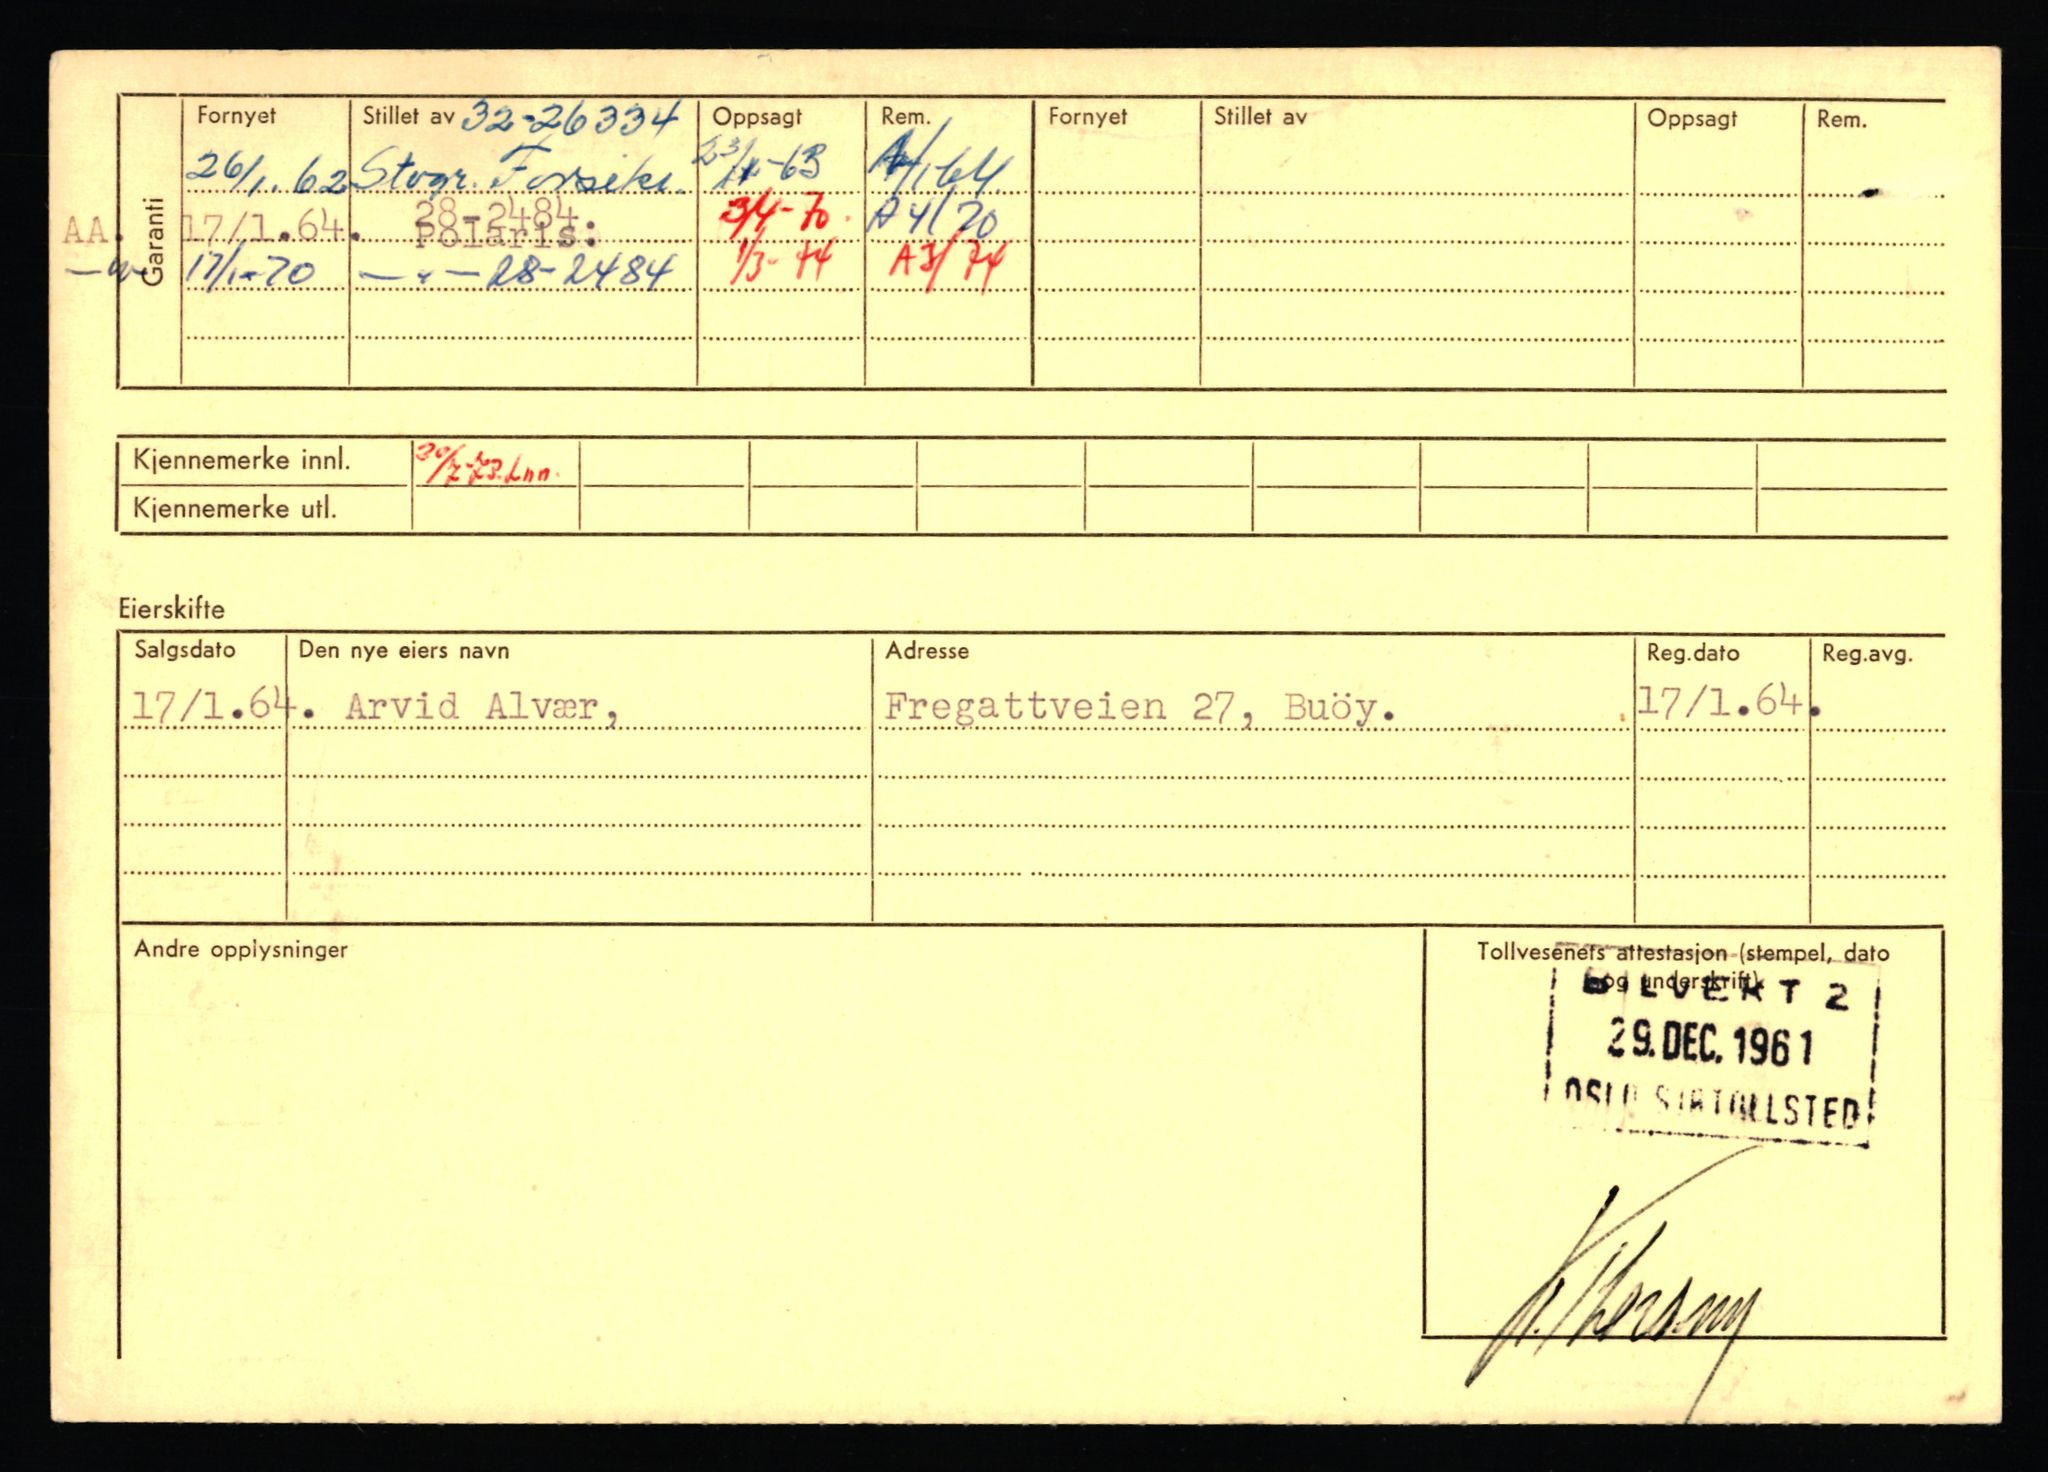 Garanti
Fornyet Stillet av 32-26334 Oppsagt Rem. Fornyet Stillet av Oppsagt Rem.
26/1.62 Stvgr. Forsikr. 23/ -63 A /1 64
28-2484.
AA. 17/1.64. Polaris: 3/4-70. A 4/70
—"— 17/1-70 —"— 28-2484 1/3-74 A3/74
Kjennemerke innl. 30/7-73. Inn.
Kjennemerke utl.
Eierskifte
Salgsdato Den nye eiers navn Adresse Reg.dato Reg.avg.
17/1.64. Arvid Alvær, Fregattveien 27, Buöy. 17/1.64.
Andre opplysninger
Tollvesenets attestasjon (stempel, dato
og underskrift)
BILVEKT 2
29. DEC. 1961
OSLO TOLLSTED